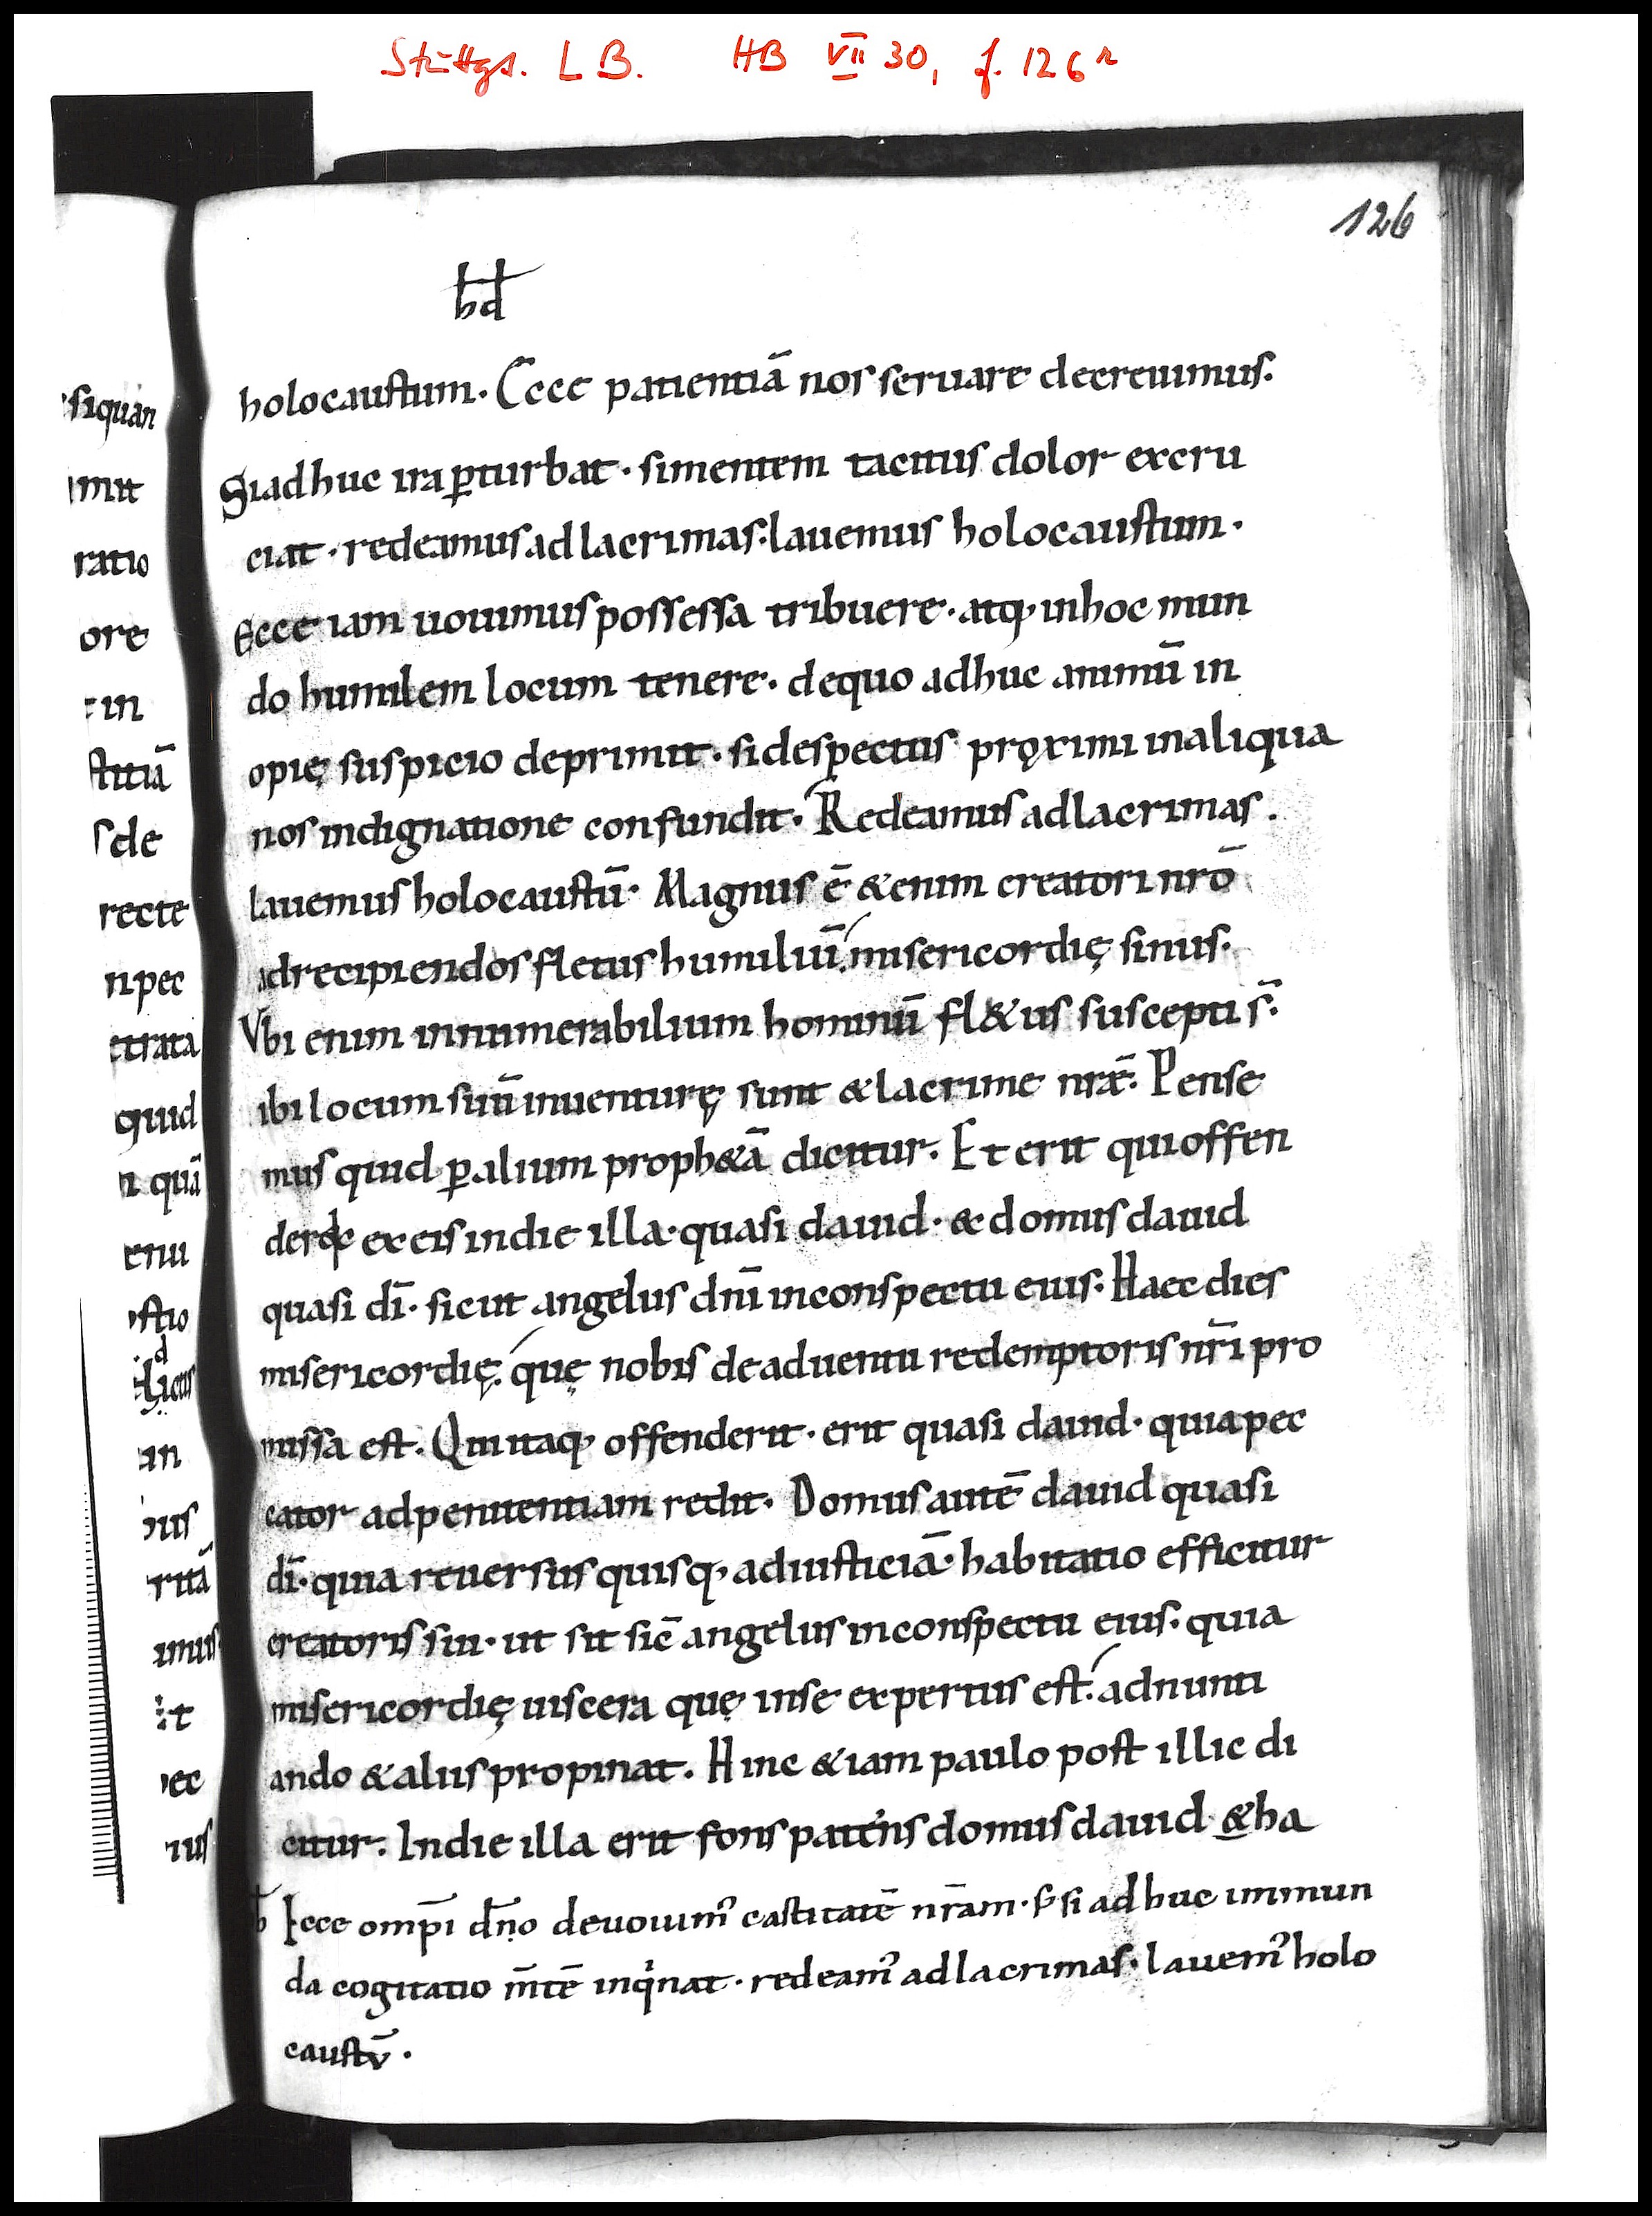 Stuttga. LB. HB VII 30, f. 126r
126
hd
holocaustum. Ecce patientiā nos seruare decreuimus.
Siadhuc ira ꝑturbat. simentem tacitus dolor excru
ciat. redeamus ad lacrimas. lauemus holocaustum.
Ecce iam uouimus possessa tribuere. atq; inhoc mun
do humilem locum tenere. dequo adhuc animū in
opię suspicio deprimit. si despectus pręximi inaliqua
nos indignatione confundit. Redeamus adlacrimas.
lauemus holocaustū. Magnus ē &enim creatori nrō
adrecipiendos fletus humiliū. misericordię sinus.
Vbi enim innumerabilium hominū fl&us suscepti s̄.
ibi locum suū inuenturę sunt & lacrime nrǣ. Pense
mus quid ꝑ alium proph&ā dicitur. Et erit qui offen
der& ex eis indie illa. quasi dauid. & domus dauid
quasi dī. sicut angelus dnī inconspectu eius. Haec dies
misericordię. quę nobis deaduentu redemptoris nrī pro
missa est. Qui itaq; offenderit. erit quasi dauid. quia pec
cator adpenitentiam redit. Domus autē dauid quasi
dī. quia reuersus quisq; adiusticiā. habitatio efficitur
creatoris sui. ut sit sic̄ angelus inconspectu eius. quia
misericordię uiscera quę inse expertus est. adnunti
ando & aliis propinat. Hinc &iam paulo post illic di
citur. Indie illa erit fons patens domus dauid & ha
Ecce omp̄i dn̄o deuouim᾽ castitatē nrām. s; si adhuc immun
da cogitatio m̄tē inqinat. redeam᾽ ad lacrimas. lauem᾽ holo
caustū.
siquan
mit
ratio
ore
in
stitiā
s de
recte
n pec
trata
quid
n quā
enu
stio
d
hicus
an
ius
ritā
imus
it
ec
ius